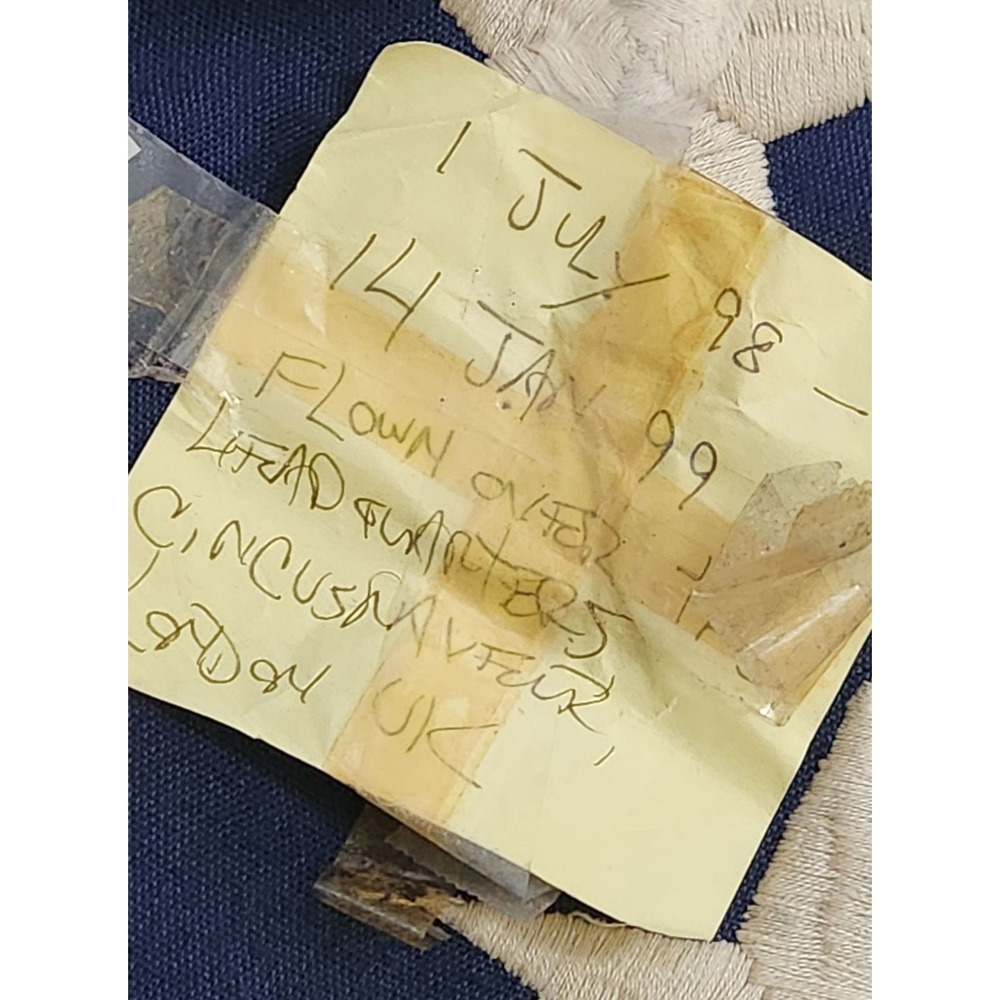 1 JULY 98 –
14 JAN 99
FLOWN OVER
HEADQUARTERS
CINCUSNAVEUR,
LONDON UK